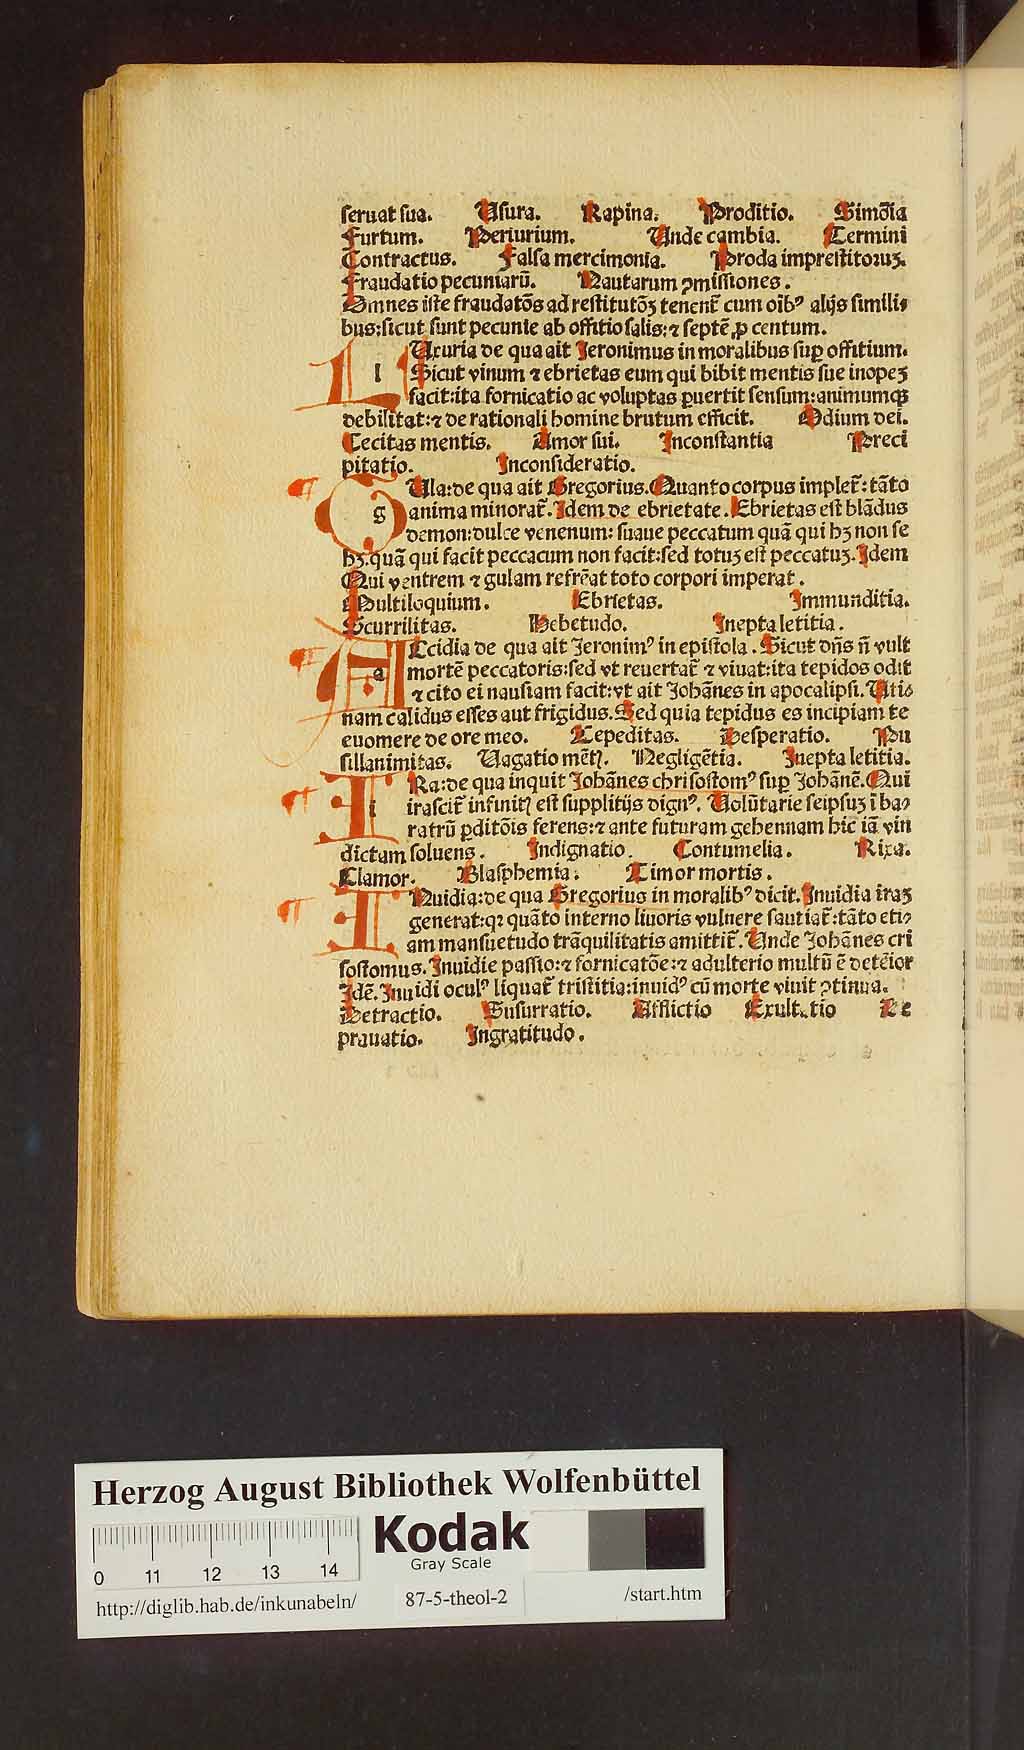 seruat sua. Usura. Rapina. Proditio. Simõia
Furtum. Periurium. Unde cambia. Termini
Contractus. Falsa mercimonia. Proda imprestitoruꝫ.
Fraudatio pecuniarũ. Nautarum ꝓmissiones.
Omnes iste fraudatõs ad restitutõꝫ tenent̃ cum oĩbꝰ alijs simili⸗
bus: sicut sunt pecunie ab offitio salis: ⁊ septẽ ꝓ centum.
LUxuria de qua ait Jeronimus in moralibus suꝑ offitium.
Sicut vinum ⁊ ebrietas eum qui bibit mentis sue inopeꝫ
facit: ita fornicatio ac voluptas ꝑuertit sensum: animumqꝫ
debilitat: ⁊ de rationali homine brutum efficit. Odium dei.
Cecitas mentis. Amor sui. Inconstantia Preci
pitatio. Inconsideratio.
GUla: de qua ait Gregorius. Quanto corpus implet̃: tãto
anima minorat̃. Idem de ebrietate. Ebrietas est blãdus
demon: dulce venenum: suaue peccatum quã qui hꝫ non se
hꝫ. quã qui facit peccacum non facit: sed totuꝫ est peccatuꝫ. Idem
Qui ventrem ⁊ gulam refrẽat toto corpori imperat.
Multiloquium. Ebrietas. Immunditia.
Scurrilitas. Hebetudo. Inepta letitia.
ACcidia de qua ait Jeronimꝰ in epistola. Sicut dñs ñ vult
mortẽ peccatoris: sed vt reuertat̃ ⁊ viuat: ita tepidos odit
⁊ cito ei nausiam facit: vt ait Johãnes in apocalipsi. Uti⸗
nam calidus esses aut frigidus. Sed quia tepidus es incipiam te
euomere de ore meo. Tepeditas. Desperatio. Pu
sillanimitas. Uagatio mẽtꝭ. Negligẽtia. Inepta letitia.
IRa: de qua inquit Johãnes chrisostomꝰ suꝑ Johãnẽ. Qui
irascit̃ infinitꝭ est supplitijs dignꝰ. Uolũtarie seipsuꝫ ĩ ba⸗
ratrũ ꝑditõis ferens: ⁊ ante futuram gehennam hic iã vin
dictam soluens. Indignatio. Contumelia. Rixa.
Clamor. Blasphemia. Timor mortis.
INuidia: de qua Gregorius in moralibꝰ dicit. Inuidia iraꝫ
generat: qꝛ quãto interno liuoris vulnere sautiat̃: tãto eti⸗
am mansuetudo trãquilitatis amittit̃. Unde Johãnes cri
sostomus. Inuidie passio: ⁊ fornicatõe: ⁊ adulterio multũ ẽ deteĩor
Idẽ. Inuidi oculꝰ liquat̃ tristitia: inuidꝰ cũ morte viuit ꝯtinua.
Detractio. Susurratio. Afflictio Exultatio De
prauatio. Ingratitudo.
Herzog August Bibliothek Wolfenbüttel
Kodak
Gray Scale
0 11 12 13 14
http://diglib.hab.de/inkunabeln/ 87-5-theol-2 /start.htm